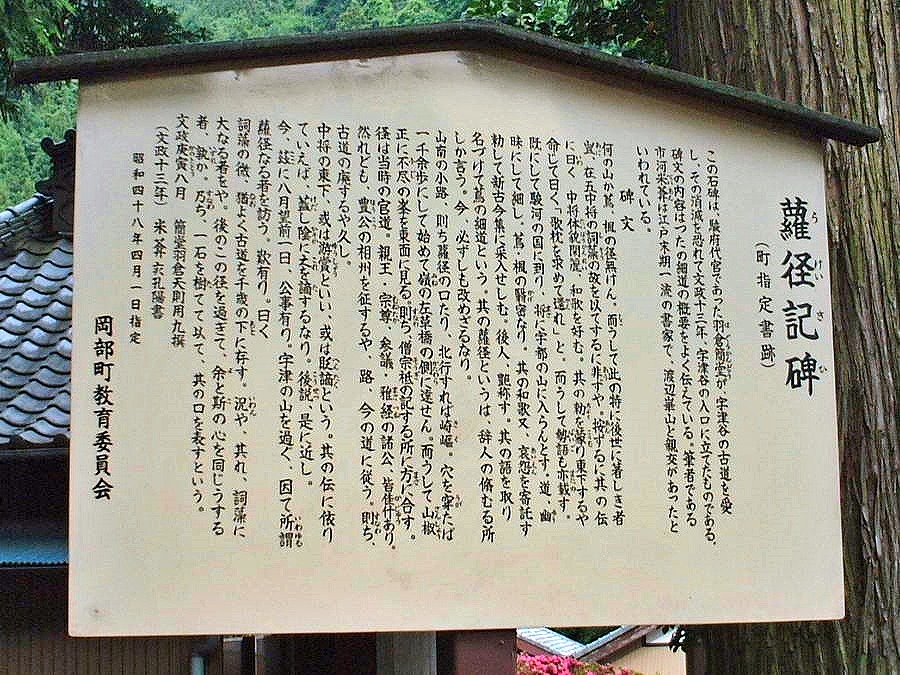 蘿径記碑
うけいきひ
（町指定書跡）
この石碑は、駿府代官であった羽倉簡堂が、宇津谷の古道を愛
し、その消滅を恐れて文政十三年、宇津谷の入口に立てたものである。
碑文の内容はつたの細道の概要をよく伝えている。筆者である
市河米菴は江戸末期一流の書家で、渡辺崋山とも親交があったと
いわれている。
碑文
何の山か蔦、楓の径無けん。而うして此の特に後世に著しき者
は、在五中将の詞藻の故を以てするに非ずや。按ずるに其の伝
に曰く、中将体貌閑麗、和歌を好む。其の勅を蒙り東下するや
命じて曰く、「歌枕を求めて還れ」と。而うして勢語も亦載す。
既にして駿河の国に到り、将に宇都の山に入らんとす。道、幽
昧にして細し。蔦・楓の翳密なり。其の和歌又、哀怨を寄託す
勅して新古今集に采入せしむ。後人、艶称す。其の語を取り
名づけて蔦の細道という。其の蘿径というは、辞人の脩むる所
しか言う。今、必ずしも改めざるなり。
山南の小路、則ち蘿径の口たり、北行すれば崎嶇。穴を穿たば
一千余歩にして始めて嶺の左草橋の側に達せん。而うして山椒
正に不尽の峯を東面に見る。則ち僧宗祇の記する所に方に合す。
径は当時の官道。親王・宗尊、参議、雅経の諸公、皆佳什あり。
然れども、豊公の相州を征するや、路、今の道に従う。則ち、
古道の廃するや久し。
中将の東下、或は游賞といい、或は貶謫という。其の伝に依り
ていえば、蓋し陰に夫を謫するなり。後説、是に近し。
今、玆に八月望前一日、公事有り。宇津の山を過ぐ、因て所謂
蘿径なる者を訪う。歎有り。曰く
詞藻の微、猶よく古道を千歳の下に存す。況や、其れ、詞藻に
大なる者をや。後のこの径を過ぎて、余と斯の心を同じうする
者、孰か。乃ち、一石を樹てて以て、其の口を表すという。
文政庚寅八月　簡堂羽倉天則用九撰
（文政十三年）米菴亥孔陽書
昭和四十八年四月一日指定
岡部町教育委員会